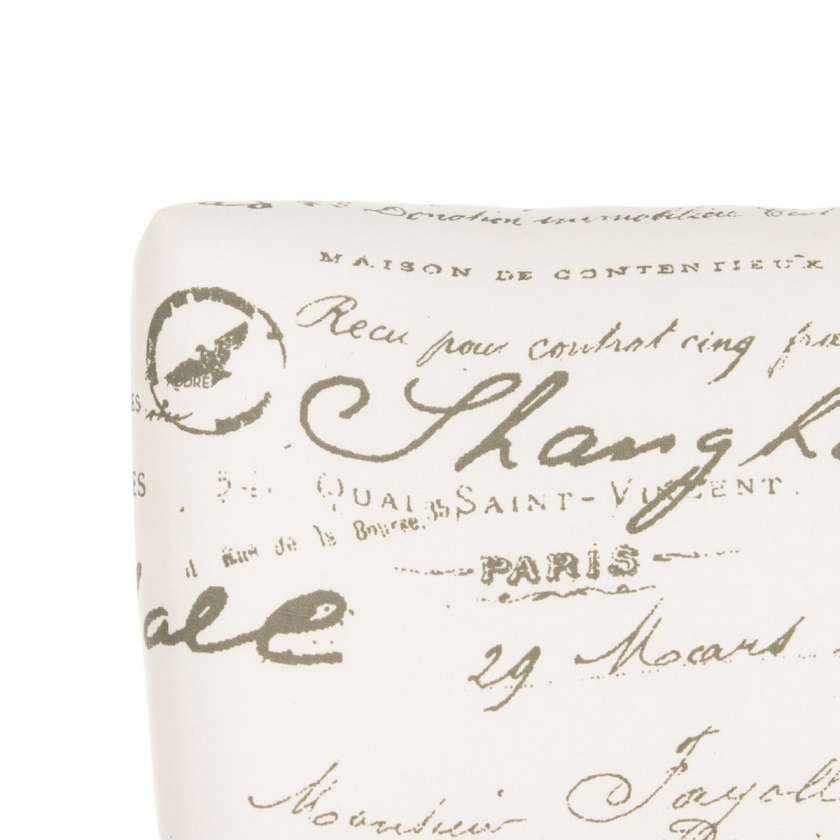 Donation immobiliere
MAISON DE CONTENTIEUX
Recu pour contrat cinq
ES
Shangh
ES
54 QUAI SAINT-VINCENT
11 Rue de la Bourse
PARIS
ale
29 Mars
Monsieur Fayoll